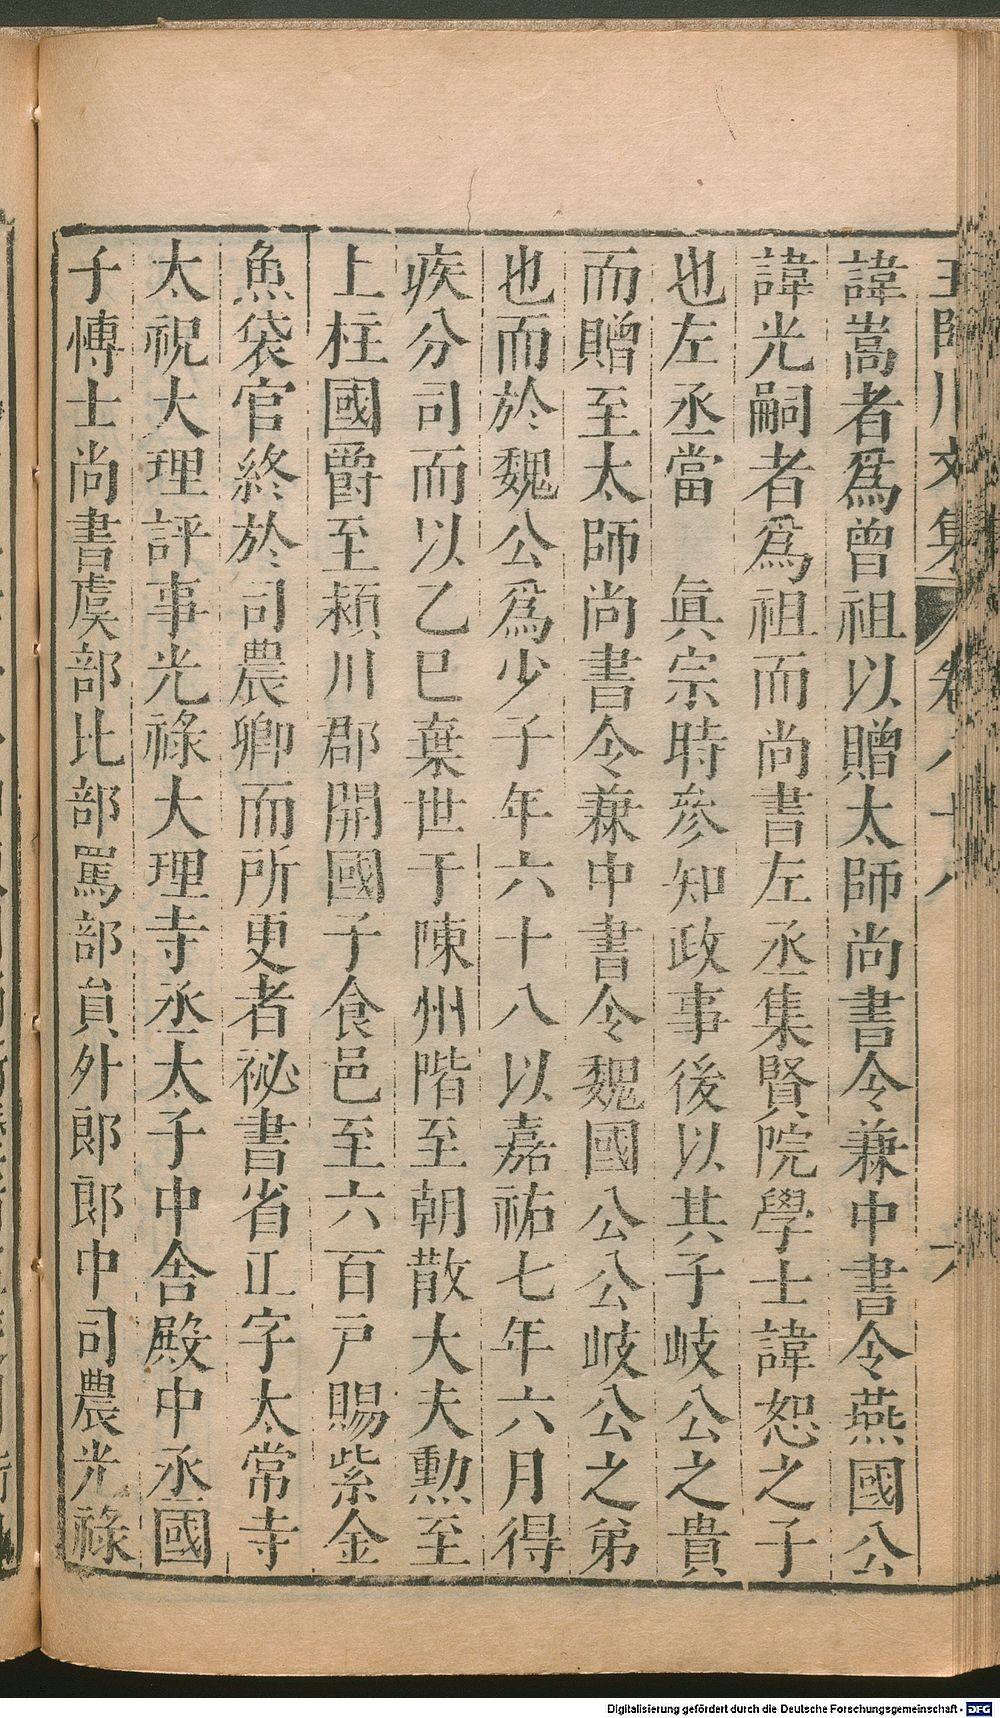 王臨川文集 卷八十八 六
諱嵩者爲曾祖以贈太師尚書令兼中書令燕國公
諱光嗣者爲祖而尚書左丞集賢院學士諱恕之子
也左丞當 眞宗時參知政事後以其子岐公之貴
而贈至太師尚書令兼中書令魏國公公岐公之弟
也而於魏公爲少子年六十八以嘉祐七年六月得
疾分司而以乙巳棄世于陳州階至朝散大夫勲至
上柱國爵至潁川郡開國子食邑至六百戸賜紫金
魚袋官終於司農卿而所更者祕書省正字太常寺
太祝大理評事光祿大理寺丞太子中舍殿中丞國
子博士尚書虞部比部駕部員外郎郎中司農光祿
Digitalisierung gefördert durch die Deutsche Forschungsgemeinschaft - DFG